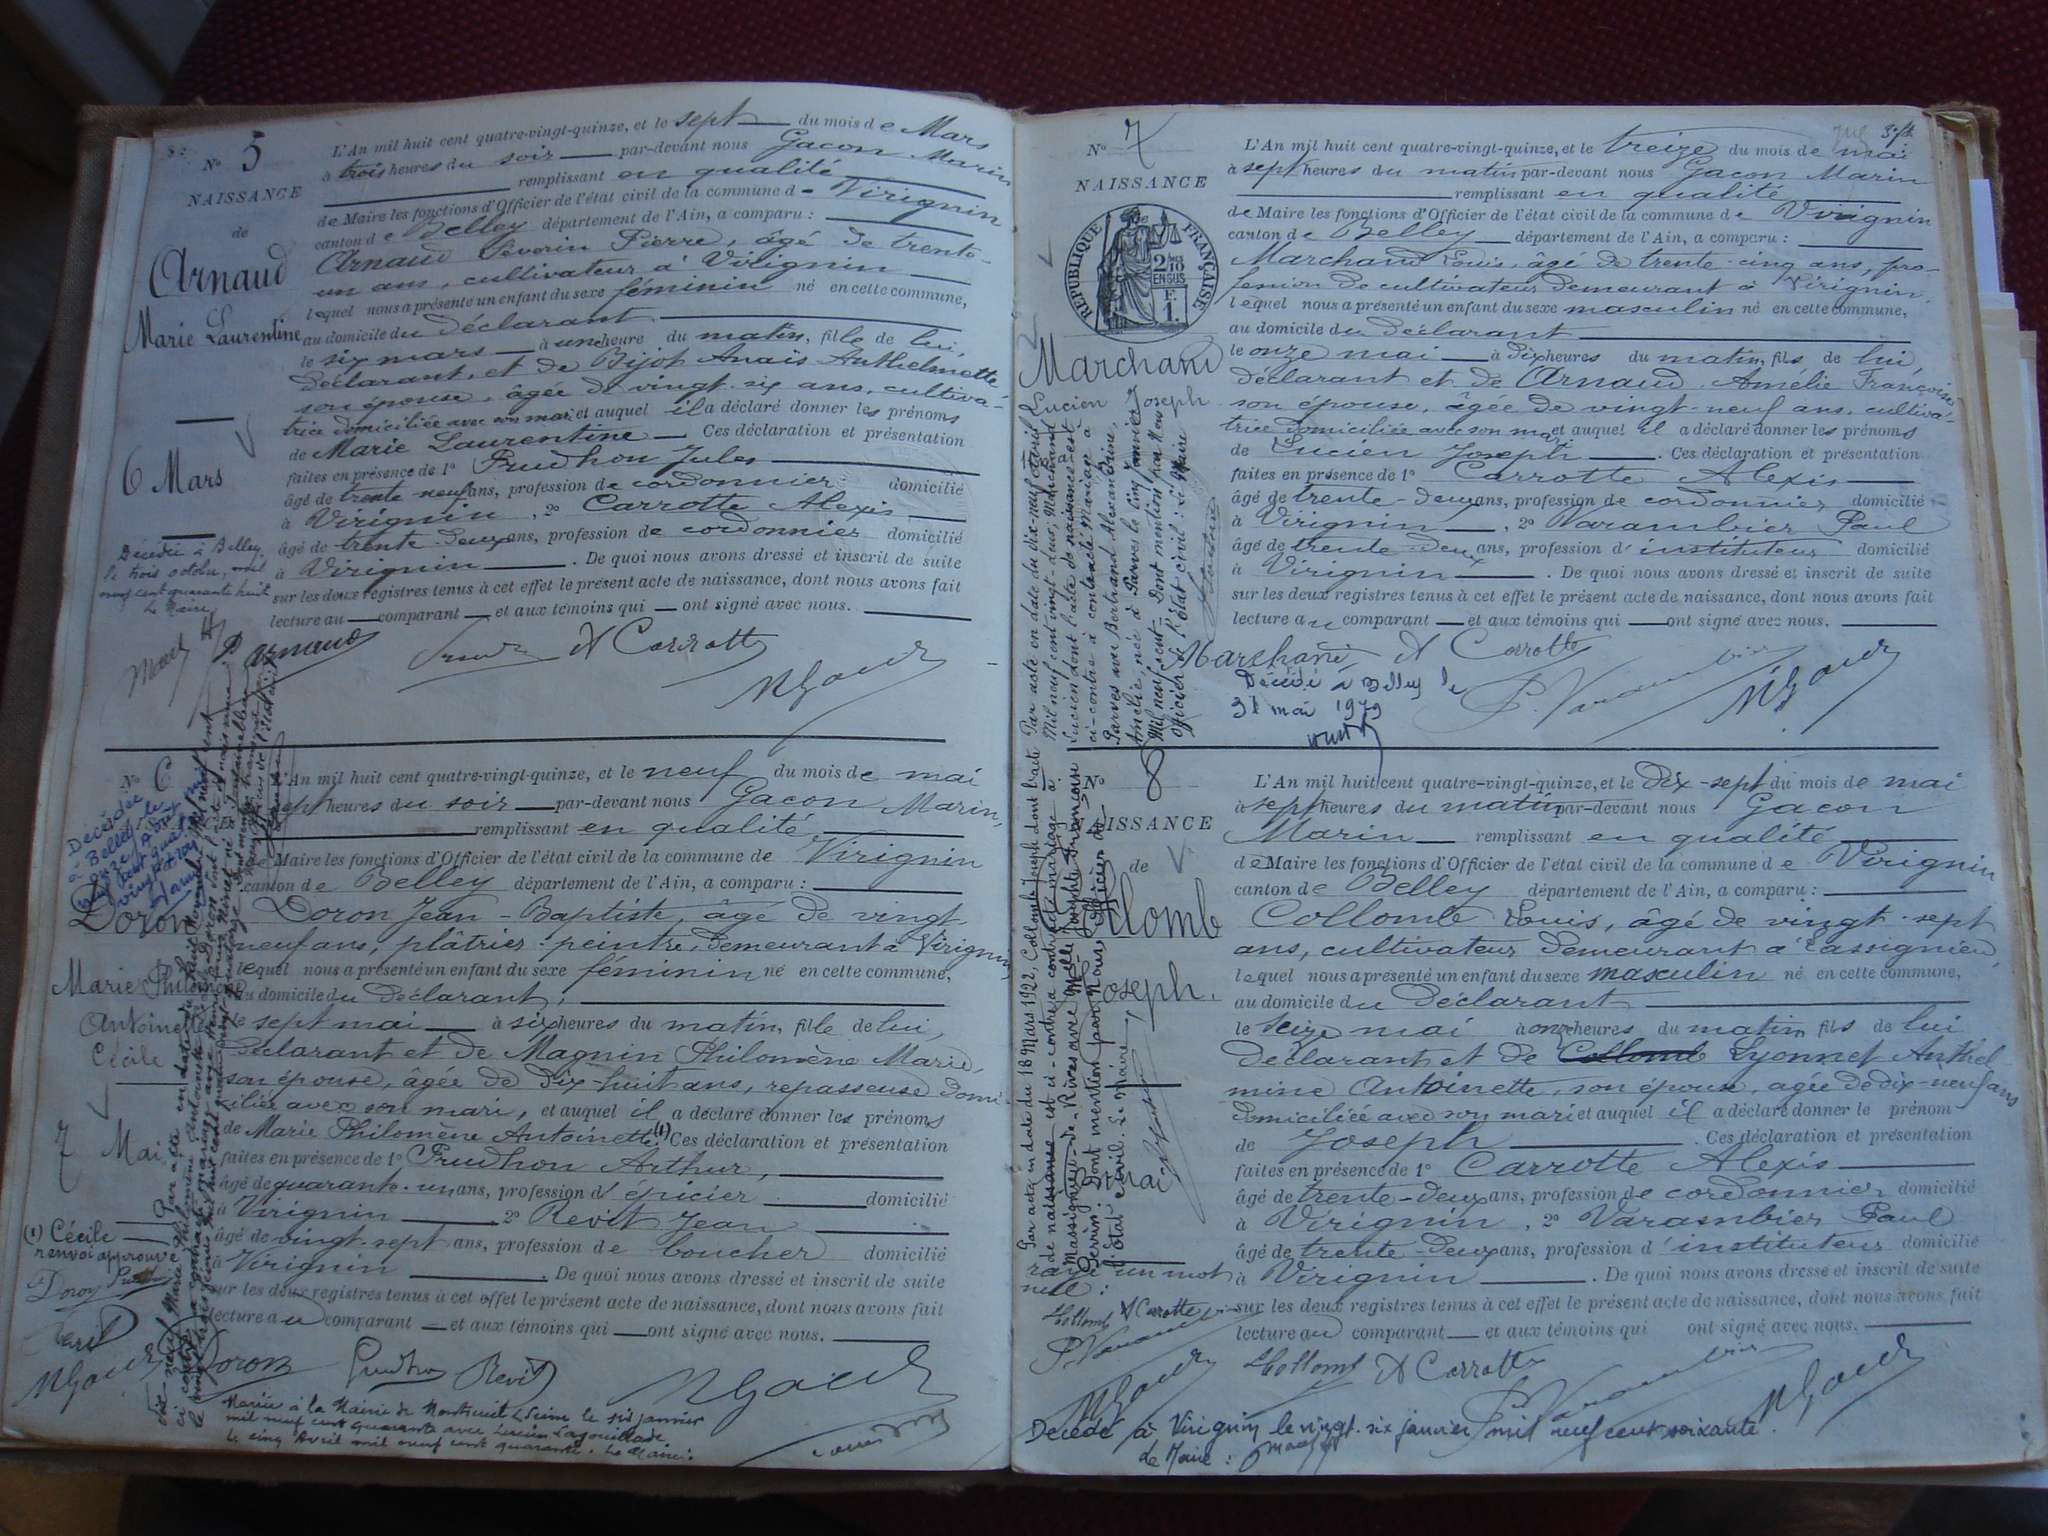 N° 5
NAISSANCE
de
Arnaud
Marie Laurentine
6 Mars
Décédée à Belley
le trois octobre, mil
neuf cent quarante huit
Le Maire
L'An mil huit cent quatre-vingt-quinze, et le sept du mois de Mars
à trois heures du soir par-devant nous Gacon Marin
remplissant en qualité
de Maire les fonctions d'Officier de l'état civil de la commune de Virignin
canton de Belley département de l'Ain, a comparu :
Arnaud Séverin Pierre, âgé de trente-
un ans, cultivateur à Virignin
lequel nous a présenté un enfant du sexe féminin né en cette commune,
au domicile du déclarant
le six mars à une heure du matin, fille de lui,
déclarant, et de Bijot Anaïs Anthelmette
son épouse, âgée de vingt-six ans, cultiva-
trice domiciliée avec son mari et auquel il a déclaré donner les prénoms
de Marie Laurentine Ces déclaration et présentation
faites en présence de 1° Prudhon Jules
âgé de trente neuf ans, profession de cordonnier domicilié
à Virignin, 2° Carrotte Alexis
âgé de trente deux ans, profession de cordonnier domicilié
à Virignin . De quoi nous avons dressé et inscrit de suite
sur les deux registres tenus à cet effet le présent acte de naissance, dont nous avons fait
lecture au comparant et aux témoins qui ont signé avec nous.
Arnaud A Carrotte
M Gacon
N° 6
Décédée
à Belley le
Doron
Marie Philomène
Antoinette
Cécile
7 Mai
(1) Cécile
renvoi approuvé
Doron
Revit
M Gacon
L'An mil huit cent quatre-vingt-quinze, et le neuf du mois de mai
à sept heures du soir par-devant nous Gacon Marin,
remplissant en qualité
de Maire les fonctions d'Officier de l'état civil de la commune de Virignin
canton de Belley département de l'Ain, a comparu :
Doron Jean-Baptiste, âgé de vingt
neuf ans, plâtrier-peintre, demeurant à Virignin
lequel nous a présenté un enfant du sexe féminin né en cette commune,
au domicile du déclarant,
le sept mai à six heures du matin, fille de lui,
déclarant et de Magnin Philomène Marie,
son épouse, âgée de dix-huit ans, repasseuse domi-
ciliée avec son mari, et auquel il a déclaré donner les prénoms
de Marie Philomène Antoinette (1) Ces déclaration et présentation
faites en présence de 1° Prudhon Arthur,
âgé de quarante-un ans, profession d'épicier domicilié
à Virignin 2° Revit Jean
âgé de vingt-sept ans, profession de boucher domicilié
à Virignin . De quoi nous avons dressé et inscrit de suite
sur les deux registres tenus à cet effet le présent acte de naissance, dont nous avons fait
lecture au comparant et aux témoins qui ont signé avec nous.
Doron Prudhon Revit M Gacon
Mariée à la Mairie de le six janvier
mil neuf cent quarante avec Lucien
Le cinq Avril mil neuf cent quarante. Le Maire :
N° 7
NAISSANCE
RÉPUBLIQUE FRANÇAISE
2/10
EN SUS
F.
1.
Marchand
Lucien Joseph
Par acte en date du dix-neuf avril
Mil neuf cent vingt-deux, Marchand
Lucien dont l'acte de naissance est
ci-contre a contracté mariage à
Parves avec Bertrand Alexandrine,
Amélie, née à Parves le cinq janvier
Mil neuf cent. Dont mention par Nous
officier de l'état civil : Le Maire
L'An mil huit cent quatre-vingt-quinze, et le treize du mois de mai
à sept heures du matin par-devant nous Gacon Marin
remplissant en qualité
de Maire les fonctions d'Officier de l'état civil de la commune de Virignin
canton de Belley département de l'Ain, a comparu :
Marchand Louis, âgé de trente-cinq ans, pro-
fession de cultivateur demeurant à Virignin,
lequel nous a présenté un enfant du sexe masculin né en cette commune,
au domicile du déclarant
le onze mai à dix heures du matin, fils de lui,
déclarant et de Arnaud Amélie Françoise
son épouse, âgée de vingt-neuf ans, cultiva-
trice domiciliée avec son mari et auquel il a déclaré donner les prénoms
de Lucien Joseph . Ces déclaration et présentation
faites en présence de 1° Carrotte Alexis
âgé de trente-deux ans, profession de cordonnier domicilié
à Virignin, 2° Varambier Paul
âgé de trente-deux ans, profession d'instituteur domicilié
à Virignin . De quoi nous avons dressé et inscrit de suite
sur les deux registres tenus à cet effet le présent acte de naissance, dont nous avons fait
lecture au comparant et aux témoins qui ont signé avec nous.
Marchand A Carrotte
P. Varambier M Gacon
Décédé à Belley le
31 mai 1979
N° 8
NAISSANCE
de
Collomb
Joseph.
Mai
Par acte en date du 18 Mars 1922, Collomb Joseph dont l'acte
de naissance est ci-contre a contracté mariage à
Massignieu-de-Rives avec Melle Joséphe Françoise
Perrin. Dont mention par Nous officier de
l'état civil. Le Maire,
rayé un mot
nul :
L Collomb A Carrotte
P. Varambier
M Gacon
L'An mil huit cent quatre-vingt-quinze, et le dix-sept du mois de mai
à sept heures du matin par-devant nous Gacon
Marin remplissant en qualité
de Maire les fonctions d'Officier de l'état civil de la commune de Virignin
canton de Belley département de l'Ain, a comparu :
Collomb Louis, âgé de vingt-sept
ans, cultivateur demeurant à Lassignieu
lequel nous a présenté un enfant du sexe masculin né en cette commune,
au domicile du déclarant
le seize mai à onze heures du matin fils de lui
déclarant et de Collomb Lyonnet Anthel-
mine Antoinette, son épouse, âgée de dix-neuf ans
domiciliée avec son mari et auquel il a déclaré donner le prénom
de Joseph . Ces déclaration et présentation
faites en présence de 1° Carrotte Alexis
âgé de trente-deux ans, profession de cordonnier domicilié
à Virignin, 2° Varambier Paul
âgé de trente-deux ans, profession d'instituteur domicilié
à Virignin . De quoi nous avons dressé et inscrit de suite
sur les deux registres tenus à cet effet le présent acte de naissance, dont nous avons fait
lecture au comparant et aux témoins qui ont signé avec nous.
L Collomb A Carrotte P. Varambier M Gacon
Décédé à Virignin le vingt-six janvier mil neuf cent soixante.
Le Maire :